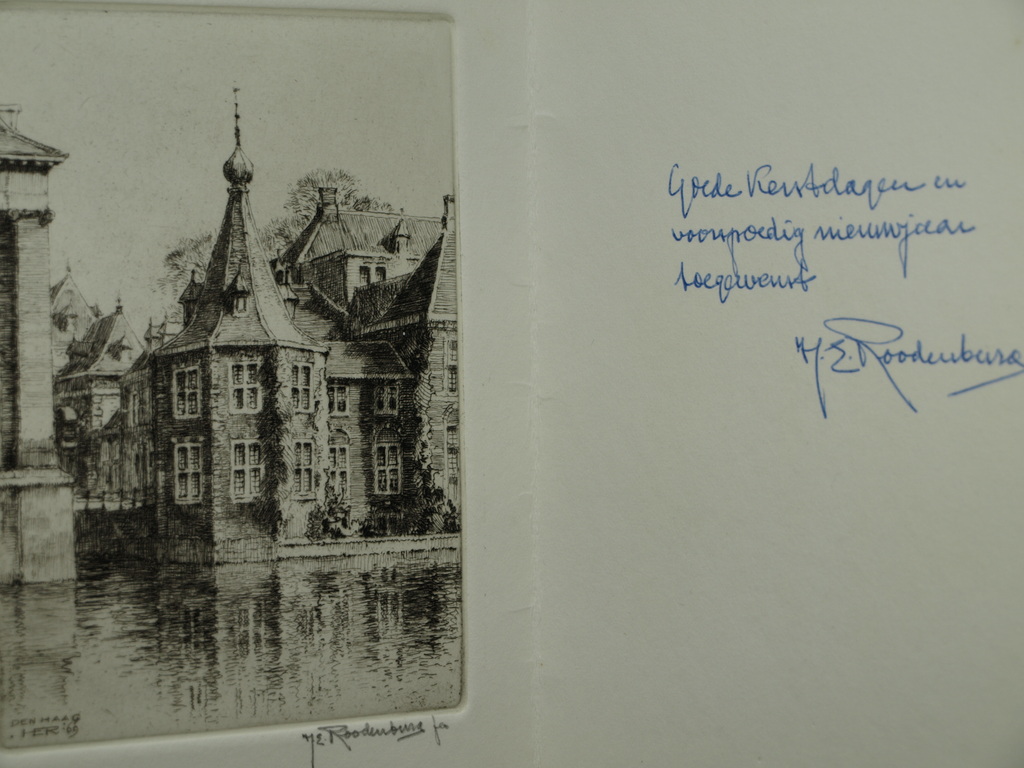 Goede Kerstdagen en
voorspoedig nieuwjaar
toegewenst
H.E. Roodenburg
DEN HAAG
HER '69
H.E. Roodenburg fe